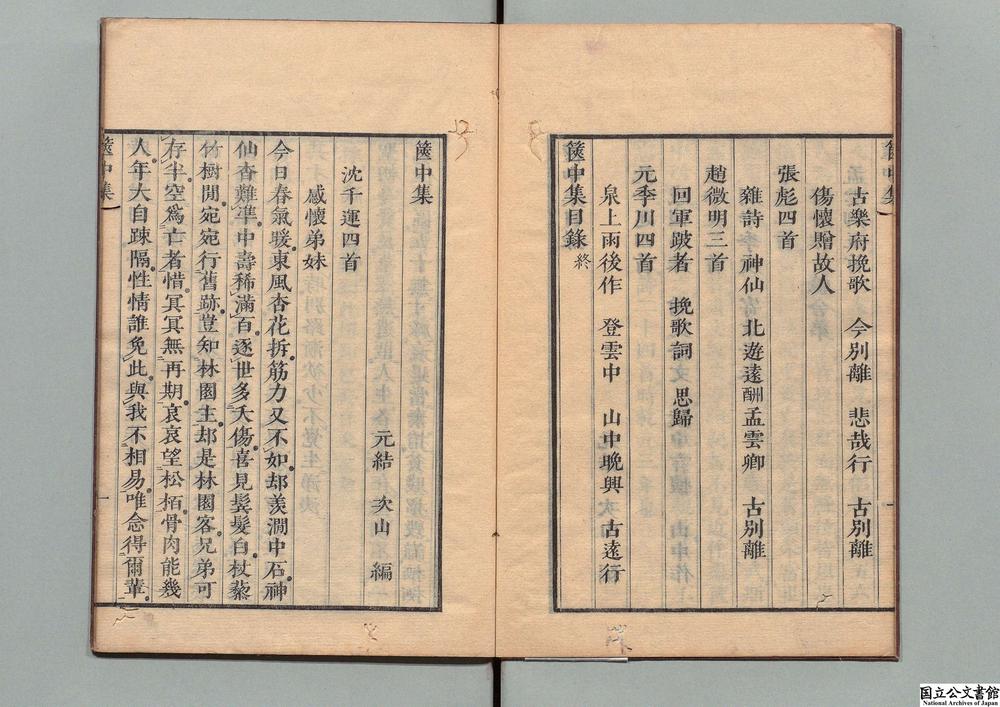 古樂府挽歌 今別離 悲哉行 古別離
傷懷贈故人
張彪四首
雜詩 神仙 北遊遠酬孟雲卿 古別離
趙微明三首
回軍跛者 挽歌詞 思歸
元季川四首
泉上雨後作 登雲中 山中晚興 古遠行
篋中集目錄終
篋中集
元結 次山 編
沈千運四首
感懷弟妹
今日春氣暖東風杏花拆筋力又不如却羨澗中石神
仙杳難準中壽稀滿百逐世多夭傷喜見鬢髮白杖藜
竹樹閒宛宛行舊跡豈知林園主却是林園客兄弟可
存半空爲亡者惜冥冥無再期哀哀望松栢骨肉能幾
人年大自疎隔性情誰免此與我不相易唯念得爾輩
篋中集 一
国立公文書館
National Archives of Japan